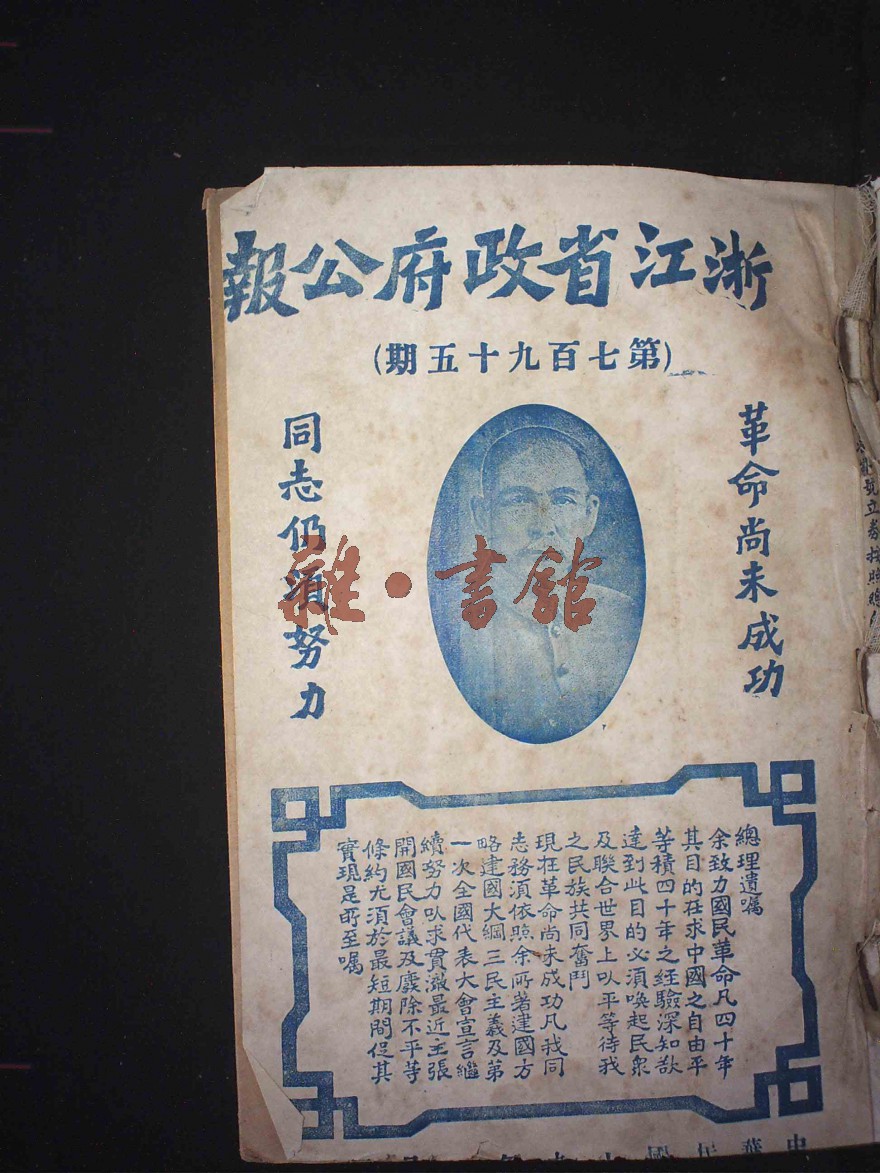 浙江省政府公報
(第七百九十五期)
革命尚未成功
同志仍須努力
雜·書館
總理遺囑
余致力國民革命凡四十年
其目的在求中國之自由平
等積四十年之經驗深知欲
達到此目的必須喚起民眾
及聯合世界上以平等待我
之民族共同奮鬥
現在革命尚未成功凡我同
志務須依照余所著建國方
略建國大綱三民主義及第
一次全國代表大會宣言繼
續努力以求貫澈最近主張
開國民會議及廢除不平等
條約尤須於最短期間促其
實現是所至囑